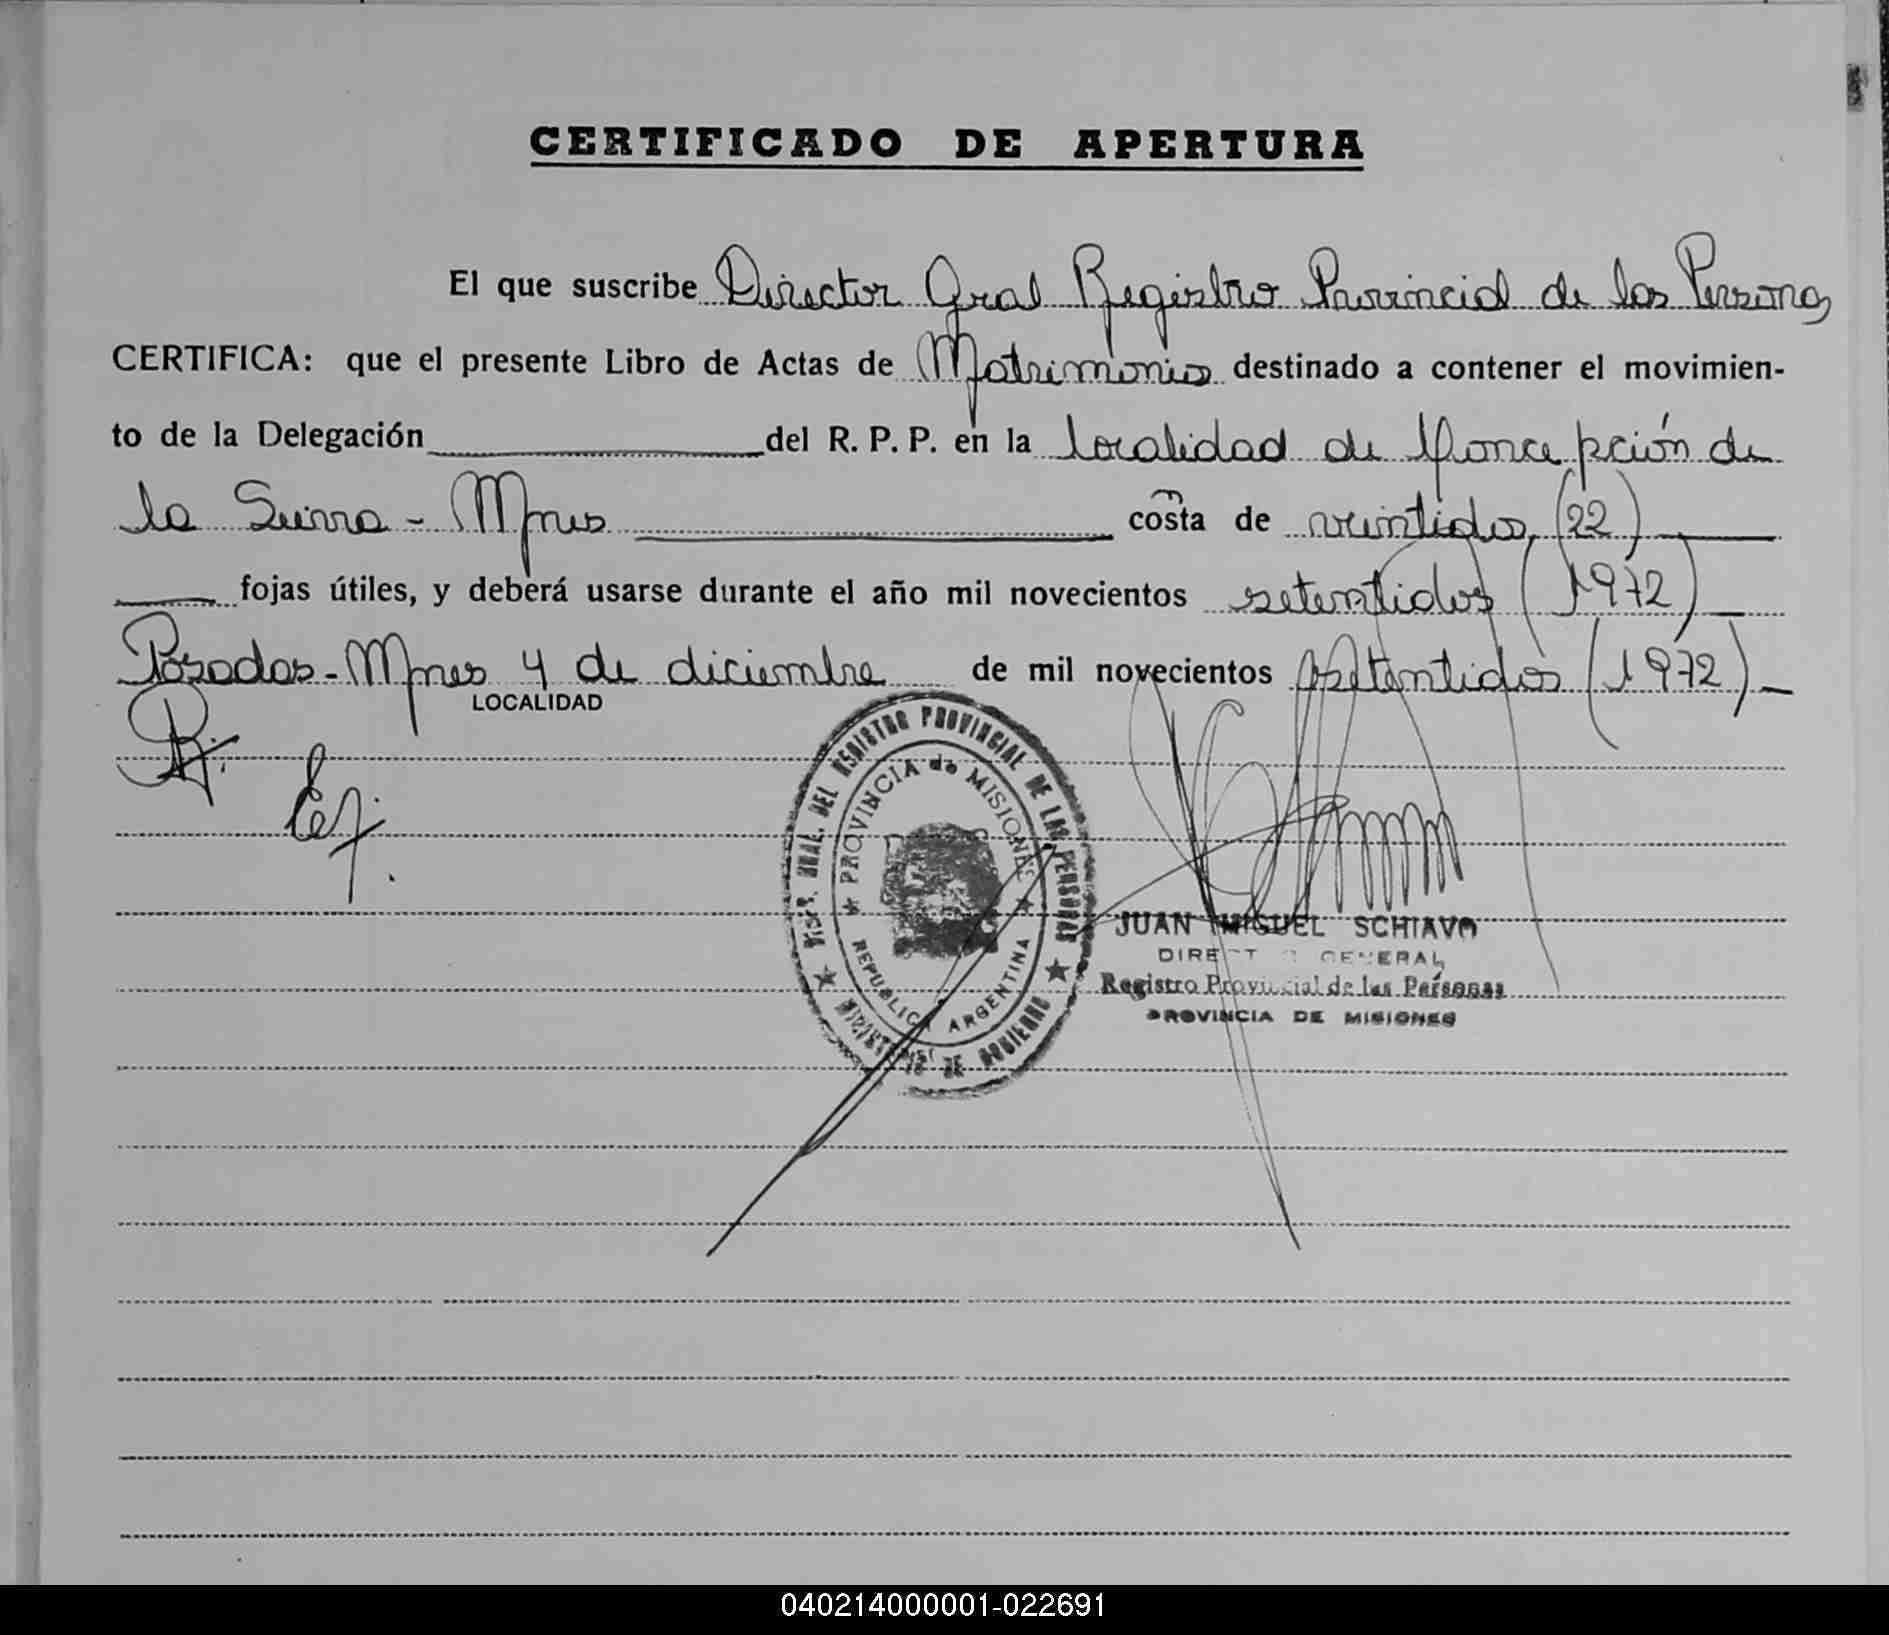 CERTIFICADO DE APERTURA
El que suscribe Director Gral Registro Provincial de las Personas
CERTIFICA: que el presente Libro de Actas de Matrimonios destinado a contener el movimien-
to de la Delegación del R. P. P. en la localidad de Concepción de
la Sierra - Mnes costa de veintidos (22)
fojas útiles, y deberá usarse durante el año mil novecientos setentidos (1972)
Posadas - Mnes 4 de diciembre de mil novecientos setentidos (1972)
LOCALIDAD
DEL REGISTRO PROVINCIAL DE LAS PERSONAS
PROVINCIA de MISIONES
REPUBLICA ARGENTINA
MINISTERIO DE GOBIERNO
JUAN MIGUEL SCHIAVO
DIRECTOR GENERAL
Registro Provincial de las Personas
PROVINCIA DE MISIONES
040214000001-022691